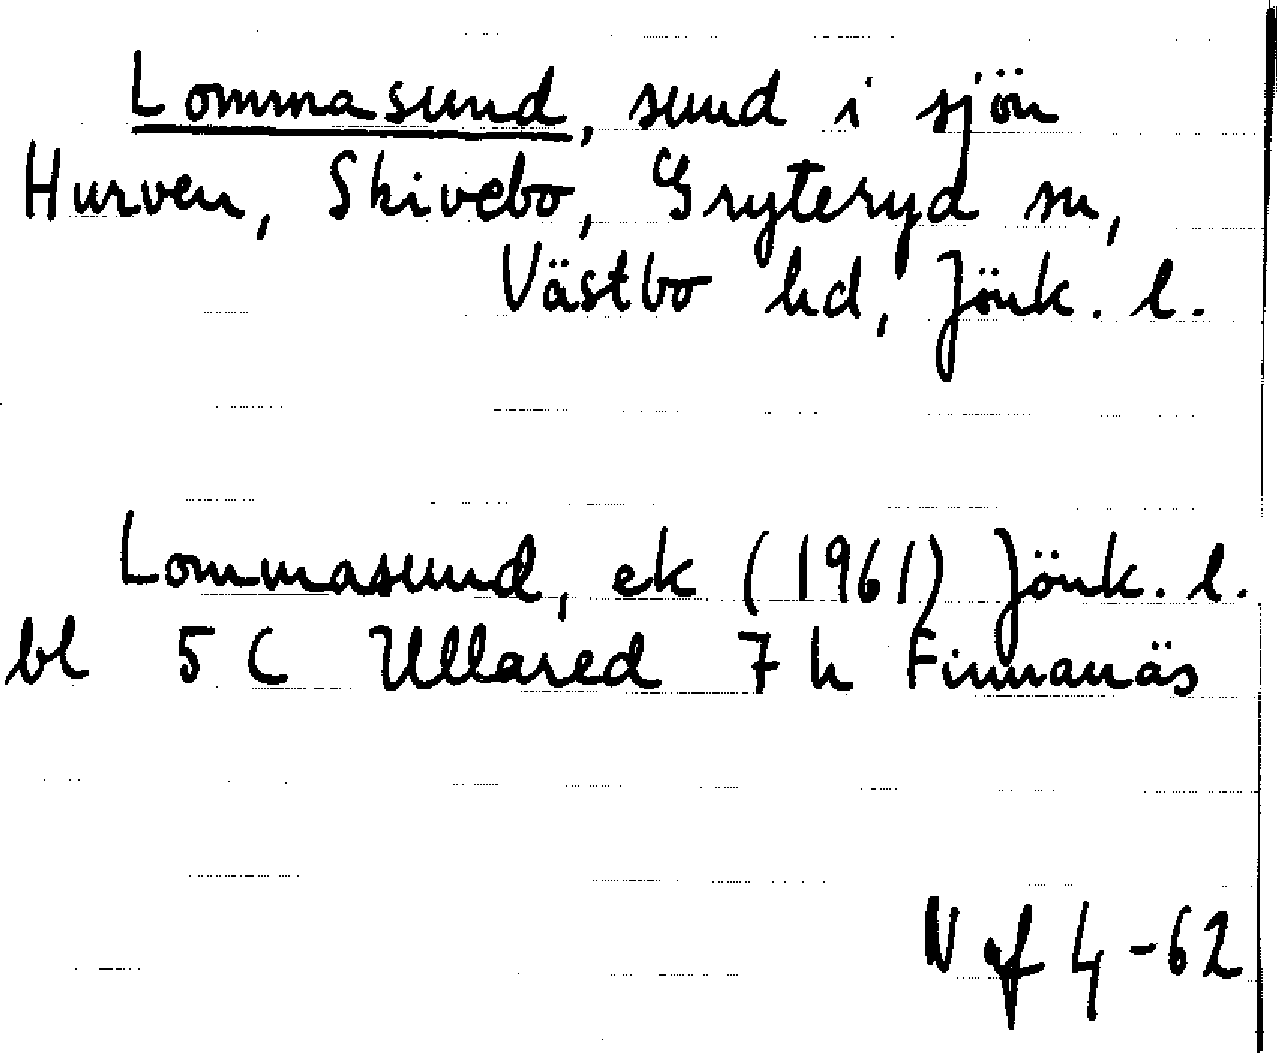 Lommasund, sund i sjön
Hurven, Skivebo, Gryteryd sn,
Västbo hd, Jönk. l.
Lommasund, ek (1961) Jönk. l.
bl 5 C Ullared 7 h Finnanäs
N of 4-62